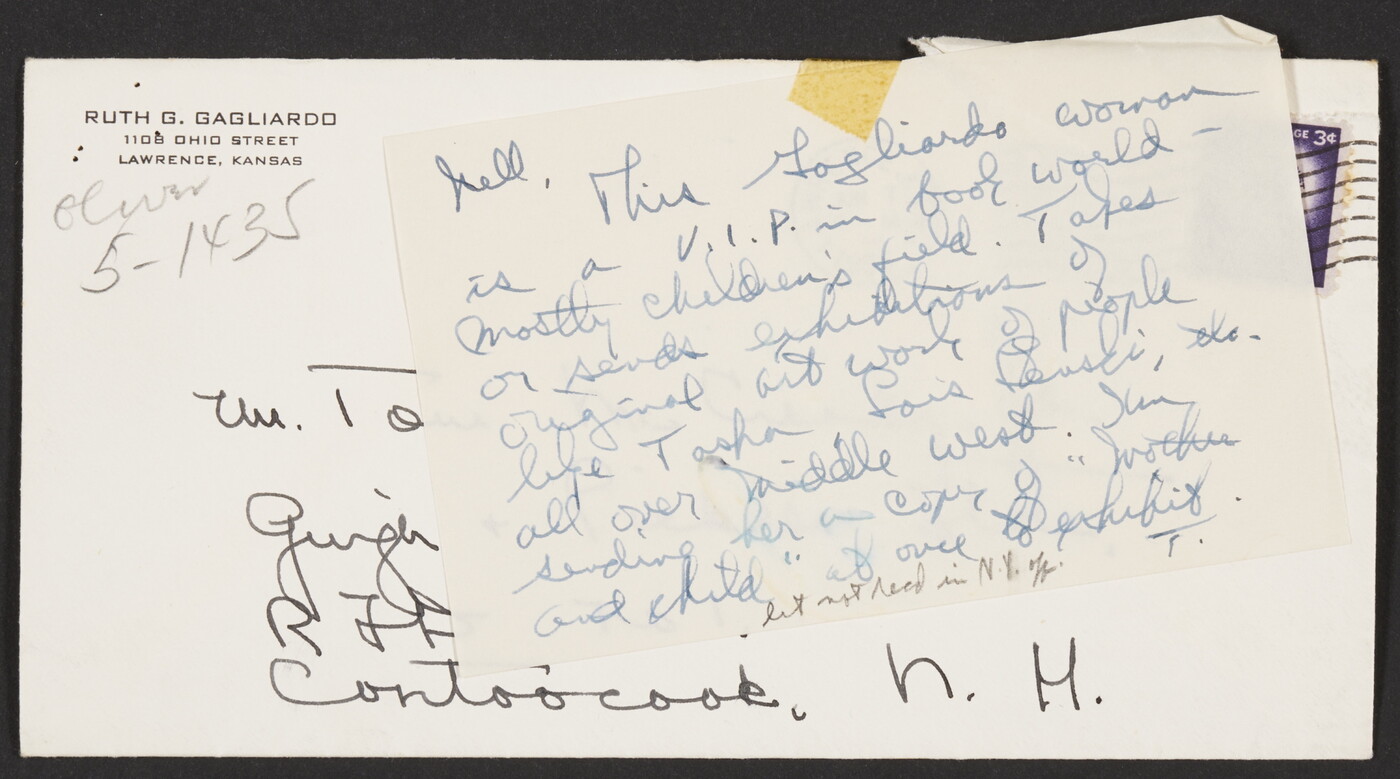 RUTH G. GAGLIARDO
1108 OHIO STREET
LAWRENCE, KANSAS
Oliver
5-1435
GE 3¢
Nell, This Gagliardo woman
is a V.I.P. in book world –
mostly children's field. Takes
or sends exhibitions of
original art work of people
like Tasha Lois Lenski, etc.
all over middle west. I'm
sending her a copy of "Mother
and child" at once to exhibit.
T.
let not read in N.Y. off.
Mr. To
R F D
Contoocook, N. H.